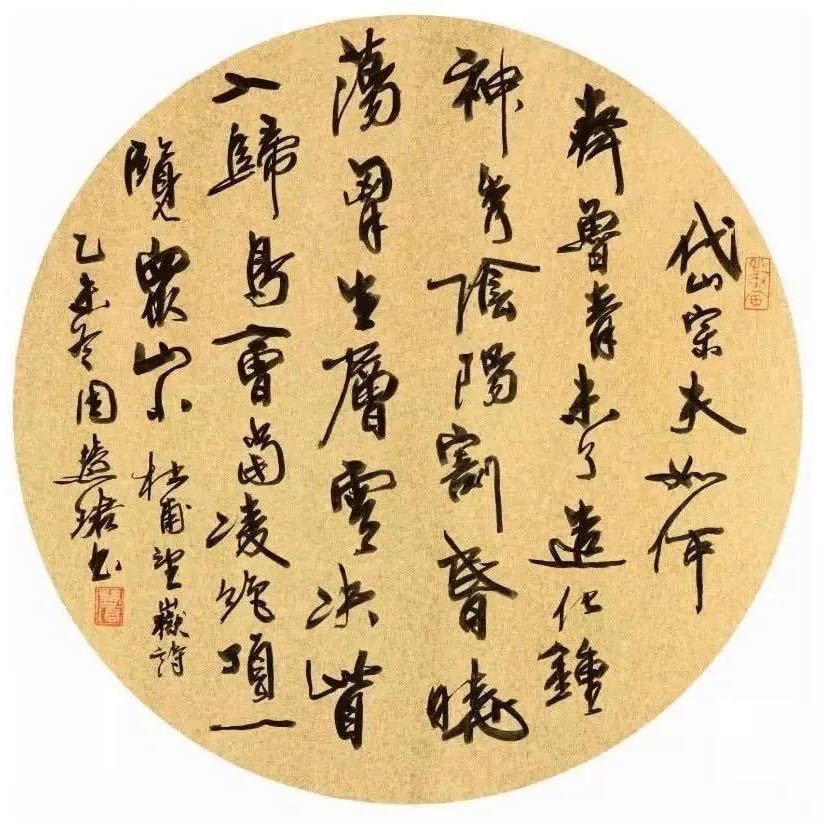 岱宗夫如何
齊魯青未了造化鍾
神秀陰陽割昏曉
蕩胷生層雲決眥
入歸鳥會當凌絕頂一
覽眾山小 杜甫望嶽詩
乙未冬周慧珺书